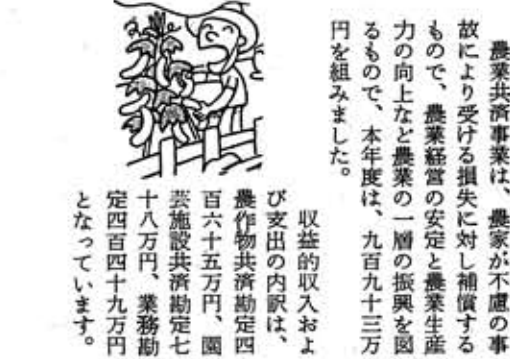 農業共済事業は、農家が不慮の事
故により受ける損失に対し補償する
もので、農業経営の安定と農業生産
力の向上など農業の一層の振興を図
るもので、本年度は、九百九十三万
円を組みました。
収益的収入およ
び支出の内訳は、
農作物共済勘定四
百六十五万円、園
芸施設共済勘定七
十八万円、業務勘
定四百四十九万円
となっています。